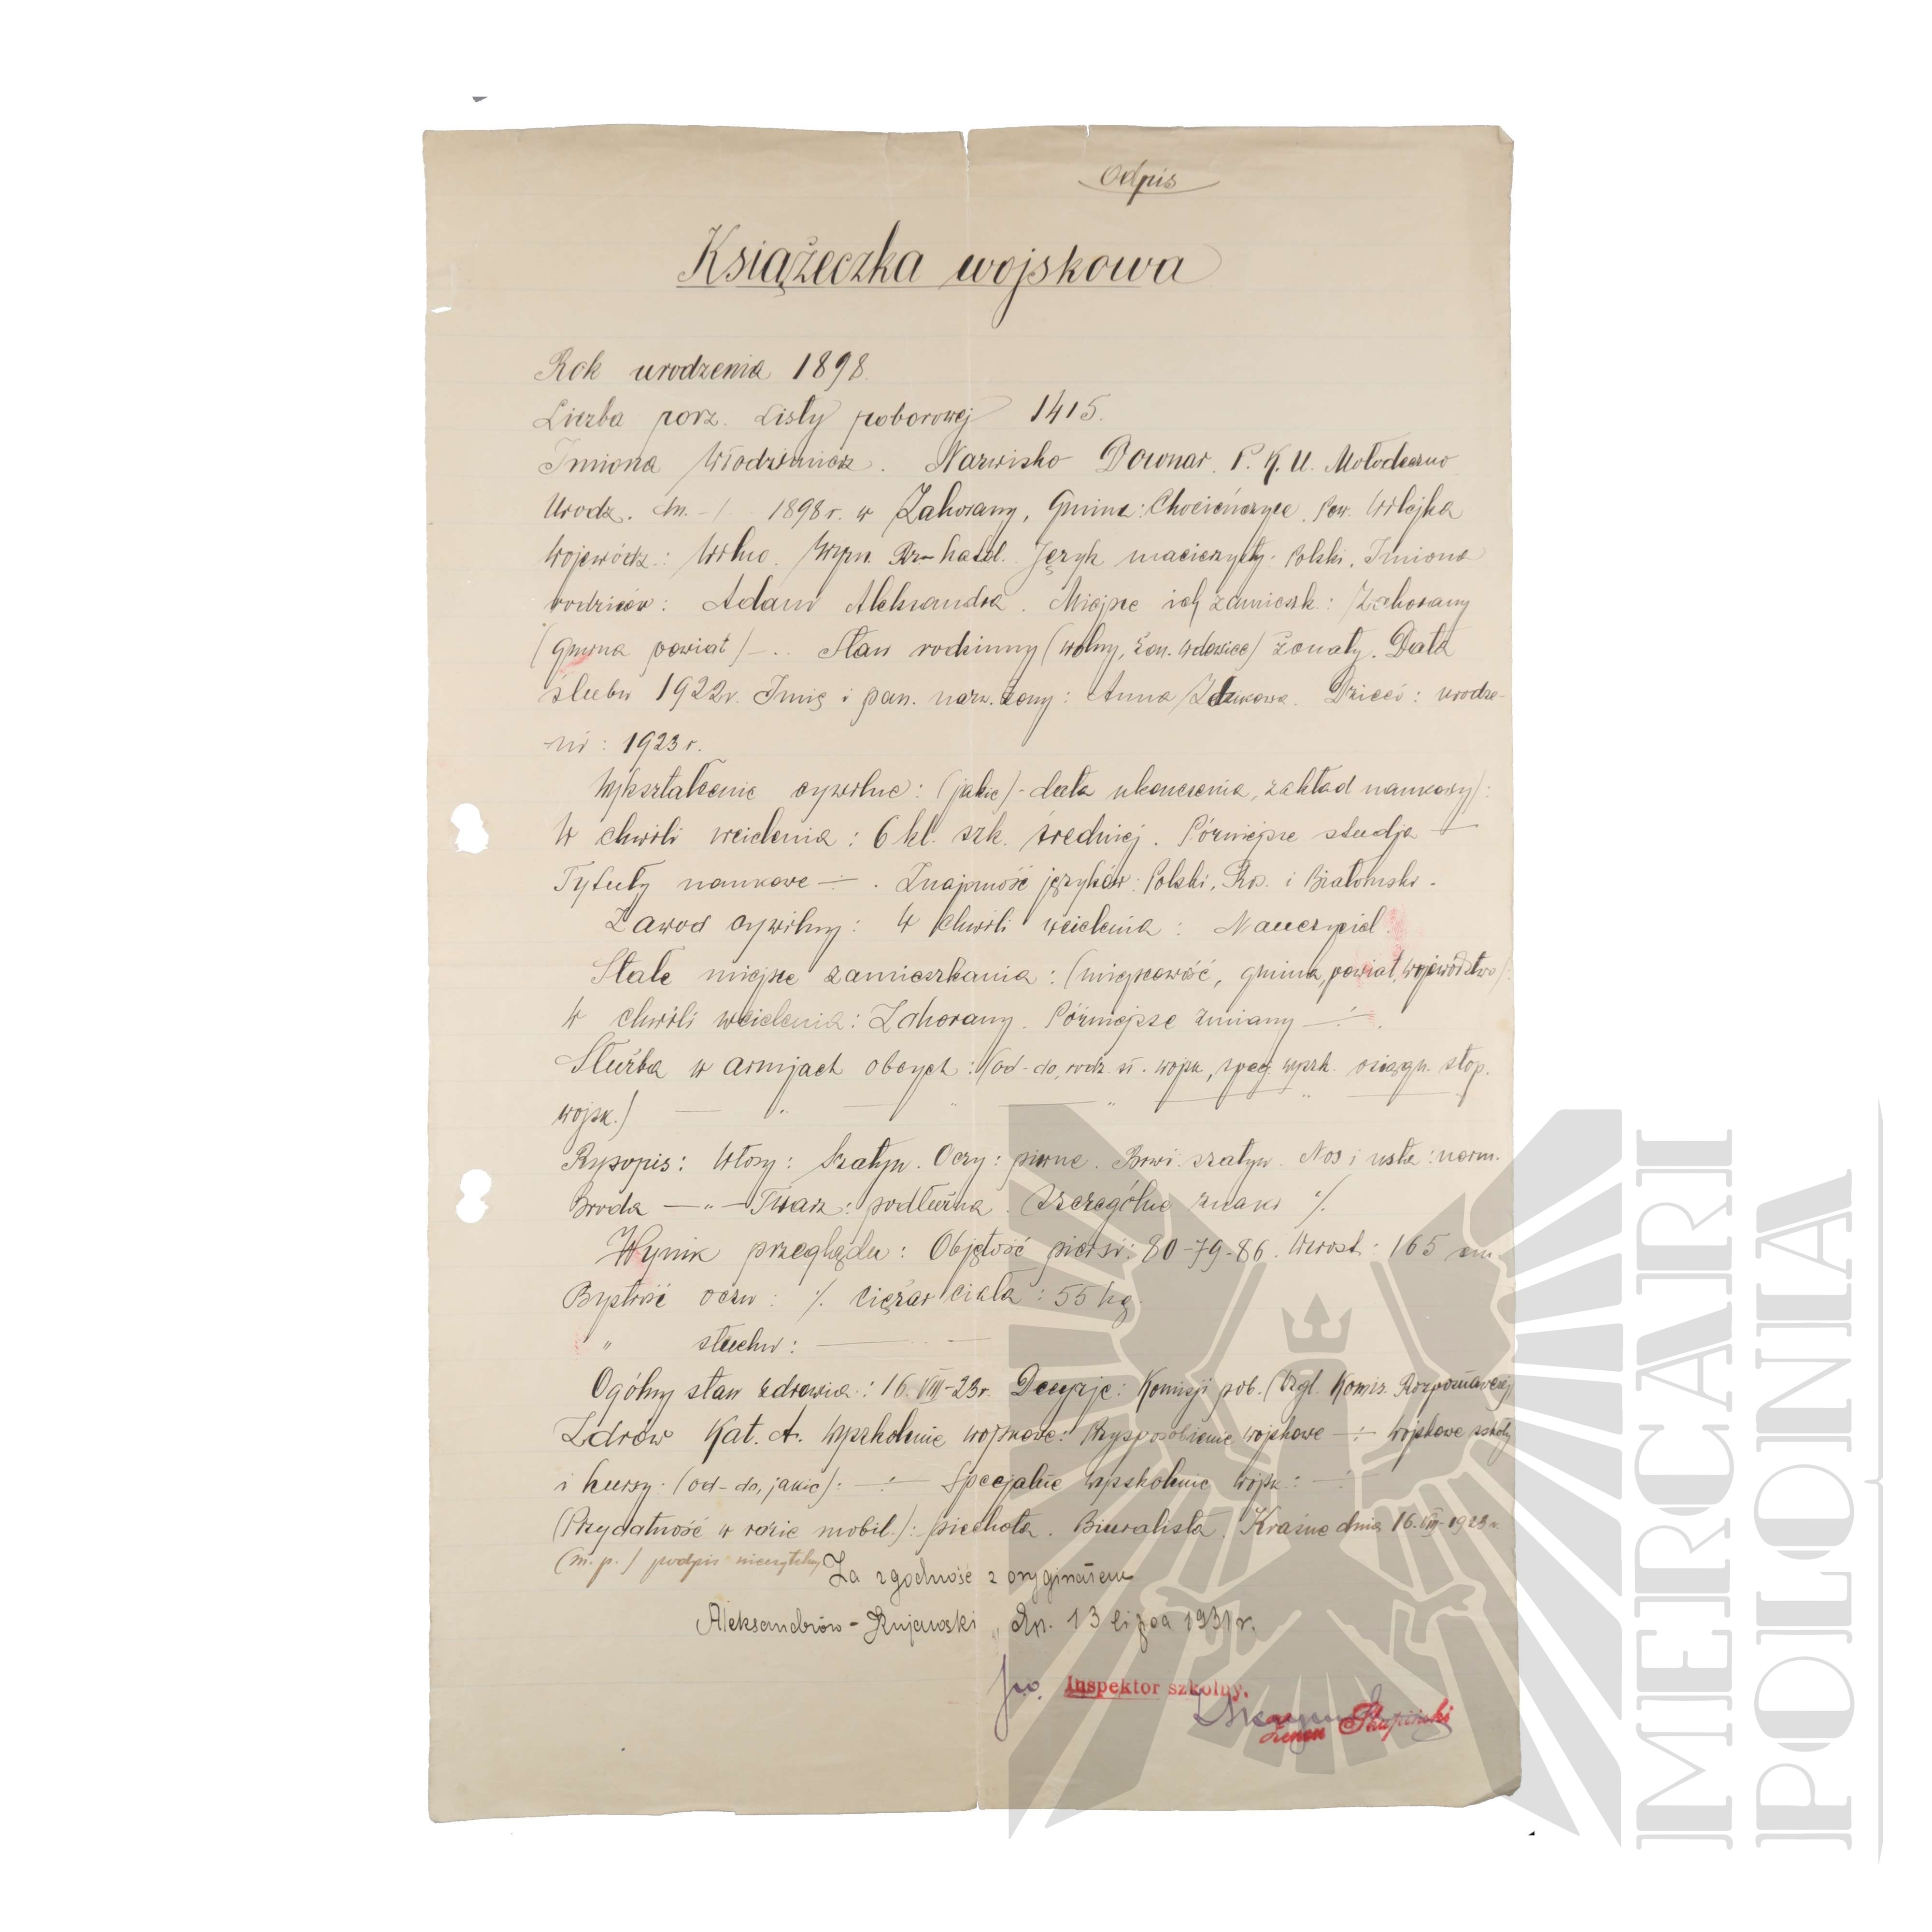 Odpis
Książeczka wojskowa
Rok urodzenia 1898.
Liczba porz. Listy poborowej 1415.
Imiona Włodzimierz. Nazwisko Downar. P.K.U. Mołodeczno
Urodz. dn. -/- 1898 r. w Zahorany, Gmina: Chocieńczyce. Pow. Wilejka
Wojewódz.: Wilno. Wyzn. Rz-katol. Język macierzysty: Polski. Imiona
rodziców: Adam Aleksandra. Miejsce ich zamieszk.: Zahorany
(gmina powiat) -.. Stan rodzinny (wolny, żon. wdowiec) żonaty. Data
ślubu 1922 r. Imię i pan. nazw. żony: Anna Dzieci: urodze-
ni: 1923 r.
Wykształcenie cywilne: (jakie) - data ukończenia, zakład naukowy):
W chwili wcielenia: 6 kl. szk. średniej. Późniejsze studja -
Tytuły naukowe -:-. Znajomość języków: Polski, Ros. i Białoruski.
Zawod cywilny: W chwili wcielenia: Nauczyciel.
Stałe miejsce zamieszkania: (miejscowość, gmina, powiat, województwo):
W chwili wcielenia: Zahorany. Późniejsze zmiany -:-.
Służba w armjach obcych: (od-do, rodz. sł. wojsk, specj. wyszk. osiągn. stop.
wojsk.) — " — " — " — " —
Rysopis: Włosy: Szatyn. Oczy: piwne. Brwi szatyn. Nos i usta: norm.
Broda — " — Twarz: podłużna. Szczególne znaki %.
Wynik przeglądu: Objętość piersi: 80-79-86. Wzrost: 165 cm.
Bystrość oczu: %. Ciężar ciała: 55 kg.
" słuchu: —
Ogólny stan zdrowia: 16.VIII-23r. Decyzje: Komisji pob. (Wzgl. Komis. Rozpoznawczej)
Zdrów Kat. A. Wyszkolenie wojskowe: Przysposobienie wojskowe -:- Wojskowe szkoły
i kursy (od-do, jakie): -:- Specjalne wyszkolenie wojsk.: -:-
(Przydatność w razie mobil.): piechota. Biuralista. Kraśne dnia 16.VIII-1923 r.
(m.p.) podpis nieczytelny
Za zgodność z oryginałem
Aleksandrów-Kujawski, dn. 13 lipca 1931 r.
Inspektor szkolny.
Zenon Skupiński
MERCARI
POLONIA